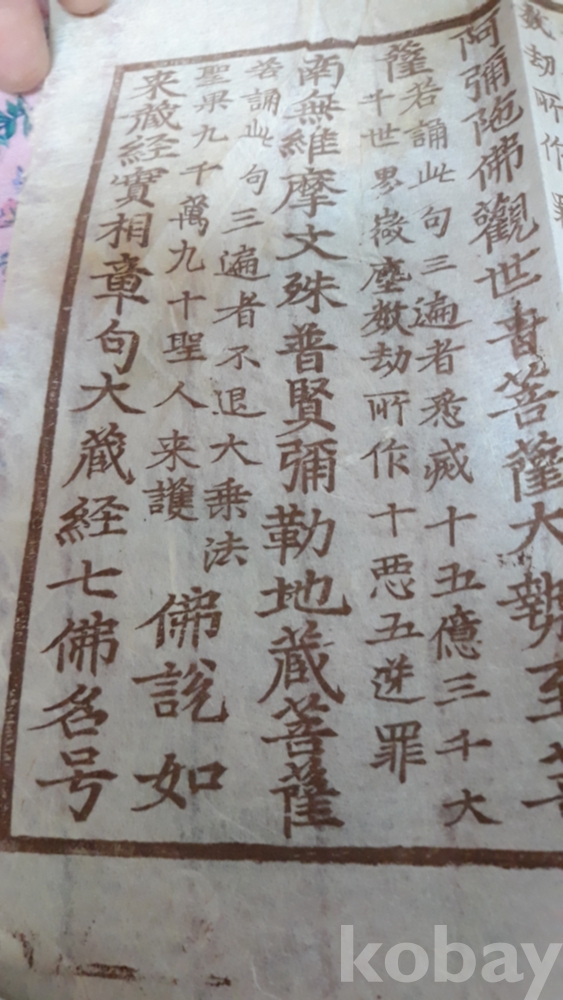 数劫所作罪
阿彌陁佛觀世音菩薩大執至菩
薩
若誦此句三遍者悉滅十五億三千大
千世界微塵数劫所作十悪五逆罪
南無維摩文殊普賢彌勒地藏菩薩
若誦此句三遍者不退大乗法
聖果九千萬九十聖人来護
佛說如
来藏経實相章句大藏経七佛名号
kobay